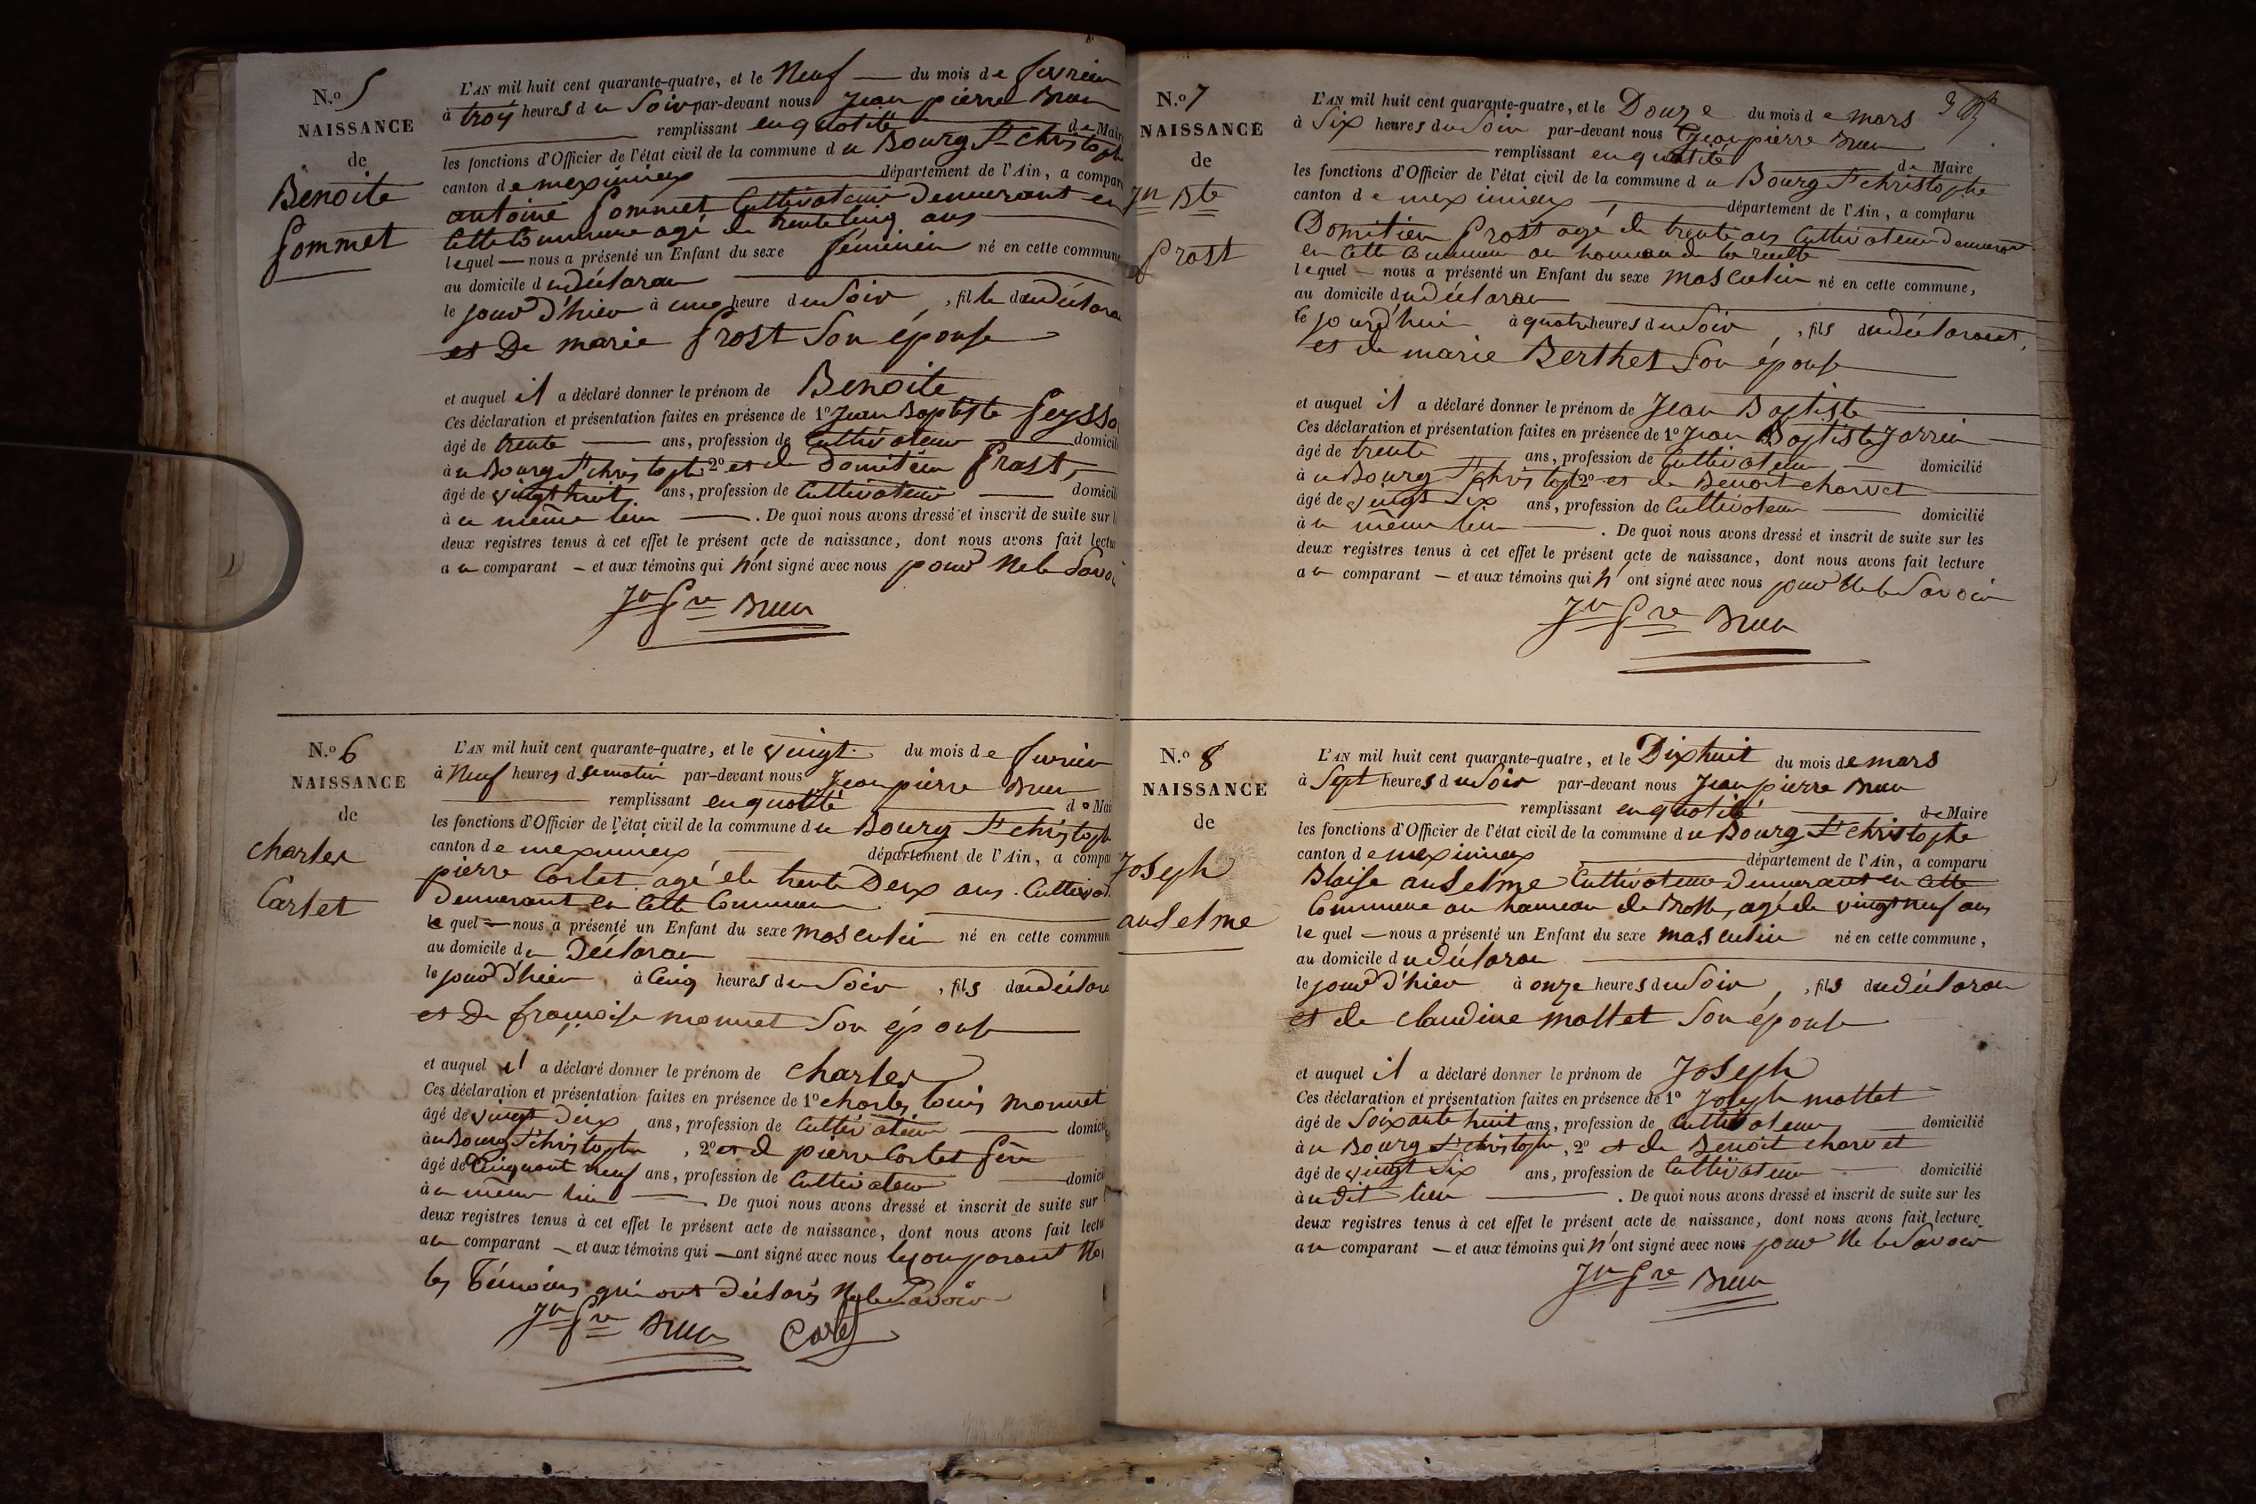 N.o 5
NAISSANCE
de
Benoite
Pommet
L'AN mil huit cent quarante-quatre, et le Neuf du mois de fevrier
à troy heures du Soir par-devant nous Jean pierre Brun
remplissant en qualité de Mair
les fonctions d'Officier de l'état civil de la commune du Bourg St christoph
canton de meximieux département de l'Ain, a compar
antoine Pommet Cultivateur Demeurant en
Cette Commune agé de trente cinq ans
lequel nous a présenté un Enfant du sexe féminin né en cette commune
au domicile du déclaran
le jour d'hier à une heure du Soir, fille du déclara
et De marie Prost Son épouse
et auquel il a déclaré donner le prénom de Benoite
Ces déclaration et présentation faites en présence de 1o Jean Baptiste
âgé de trente ans, profession de Cultivateur domicili
à u Bourg St christophe 2o et de Domitien Prost,
âgé de vingt huit ans, profession de Cultivateur domicili
à u même lieu. De quoi nous avons dressé et inscrit de suite sur l
deux registres tenus à cet effet le présent acte de naissance, dont nous avons fait lectu
au comparant et aux témoins qui n'ont signé avec nous pour Ne le Savoi
Jn Pre Brun
N.o 6
NAISSANCE
de
charles
Carlet
L'AN mil huit cent quarante-quatre, et le vingt du mois de fevrier
à Neuf heures du matin par-devant nous Jean pierre Brun
remplissant en qualité de Mai
les fonctions d'Officier de l'état civil de la commune du Bourg St christoph
canton de meximieux département de l'Ain, a compa
pierre Carlet agé de trente Deux ans Cultivat
Demeurant en Cette Commune
le quel nous a présenté un Enfant du sexe masculin né en cette commun
au domicile du Déclaran
le jour d'hier à Cinq heures du Soir, fils du déclar
et De françoise monnet Son épouse
et auquel il a déclaré donner le prénom de charles
Ces déclaration et présentation faites en présence de 1o charles Louis monnet
âgé de vingt Deux ans, profession de Cultivateur domicili
à u Bourg St christophe, 2o et de pierre Carlet père
âgé de Cinquante neuf ans, profession de Cultivateur domicil
à u même lieu. De quoi nous avons dressé et inscrit de suite sur
deux registres tenus à cet effet le présent acte de naissance, dont nous avons fait lectu
au comparant et aux témoins qui ont signé avec nous le Comparant No
les Témoins qui ont Déclarés Ne le Savoir
Jn Pre Brun
N.o 7
NAISSANCE
de
Jn Bte
Prost
L'AN mil huit cent quarante-quatre, et le Douze du mois de mars
à Six heures du Soir par-devant nous Jean pierre Brun
remplissant en qualité de Maire
les fonctions d'Officier de l'état civil de la commune du Bourg St christophe
canton de meximieux département de l'Ain, a comparu
Domitien Prost agé de trente ans Cultivateur Demeurant
en Cette Commune au hameau de la
lequel nous a présenté un Enfant du sexe masculin né en cette commune,
au domicile du déclaran
le jourd'hui à quatre heures du Soir, fils du déclarant,
et de marie Berthet Son épouse
et auquel il a déclaré donner le prénom de Jean Baptiste
Ces déclaration et présentation faites en présence de 1o Jean Baptiste Jarrin
âgé de trente ans, profession de Cultivateur domicilié
à u Bourg St christophe 2o et de Benoit charvet
âgé de vingt Six ans, profession de Cultivateur domicilié
à u même lieu. De quoi nous avons dressé et inscrit de suite sur les
deux registres tenus à cet effet le présent acte de naissance, dont nous avons fait lecture
au comparant et aux témoins qui n'ont signé avec nous pour Ne le Savoir
Jn Pre Brun
N.o 8
NAISSANCE
de
Joseph
anselme
L'AN mil huit cent quarante-quatre, et le Dix huit du mois de mars
à Sept heures du Soir par-devant nous Jean pierre Brun
remplissant en qualité de Maire
les fonctions d'Officier de l'état civil de la commune du Bourg St christophe
canton de meximieux département de l'Ain, a comparu
Blaise anselme Cultivateur Demeurant en Cette
Commune au hameau de, agé de vingt neuf ans
le quel nous a présenté un Enfant du sexe masculin né en cette commune,
au domicile du déclaran
le jour d'hier à onze heures du Soir, fils du déclaran
et de claudine mottet Son épouse
et auquel il a déclaré donner le prénom de Joseph
Ces déclaration et présentation faites en présence de 1o Joseph mottet
âgé de Soixante huit ans, profession de Cultivateur domicilié
à u Bourg St christophe, 2o et de Benoit charvet
âgé de vingt Six ans, profession de Cultivateur domicilié
à u dit lieu. De quoi nous avons dressé et inscrit de suite sur les
deux registres tenus à cet effet le présent acte de naissance, dont nous avons fait lecture
au comparant et aux témoins qui n'ont signé avec nous pour Ne le Savoir
Jn Pre Brun